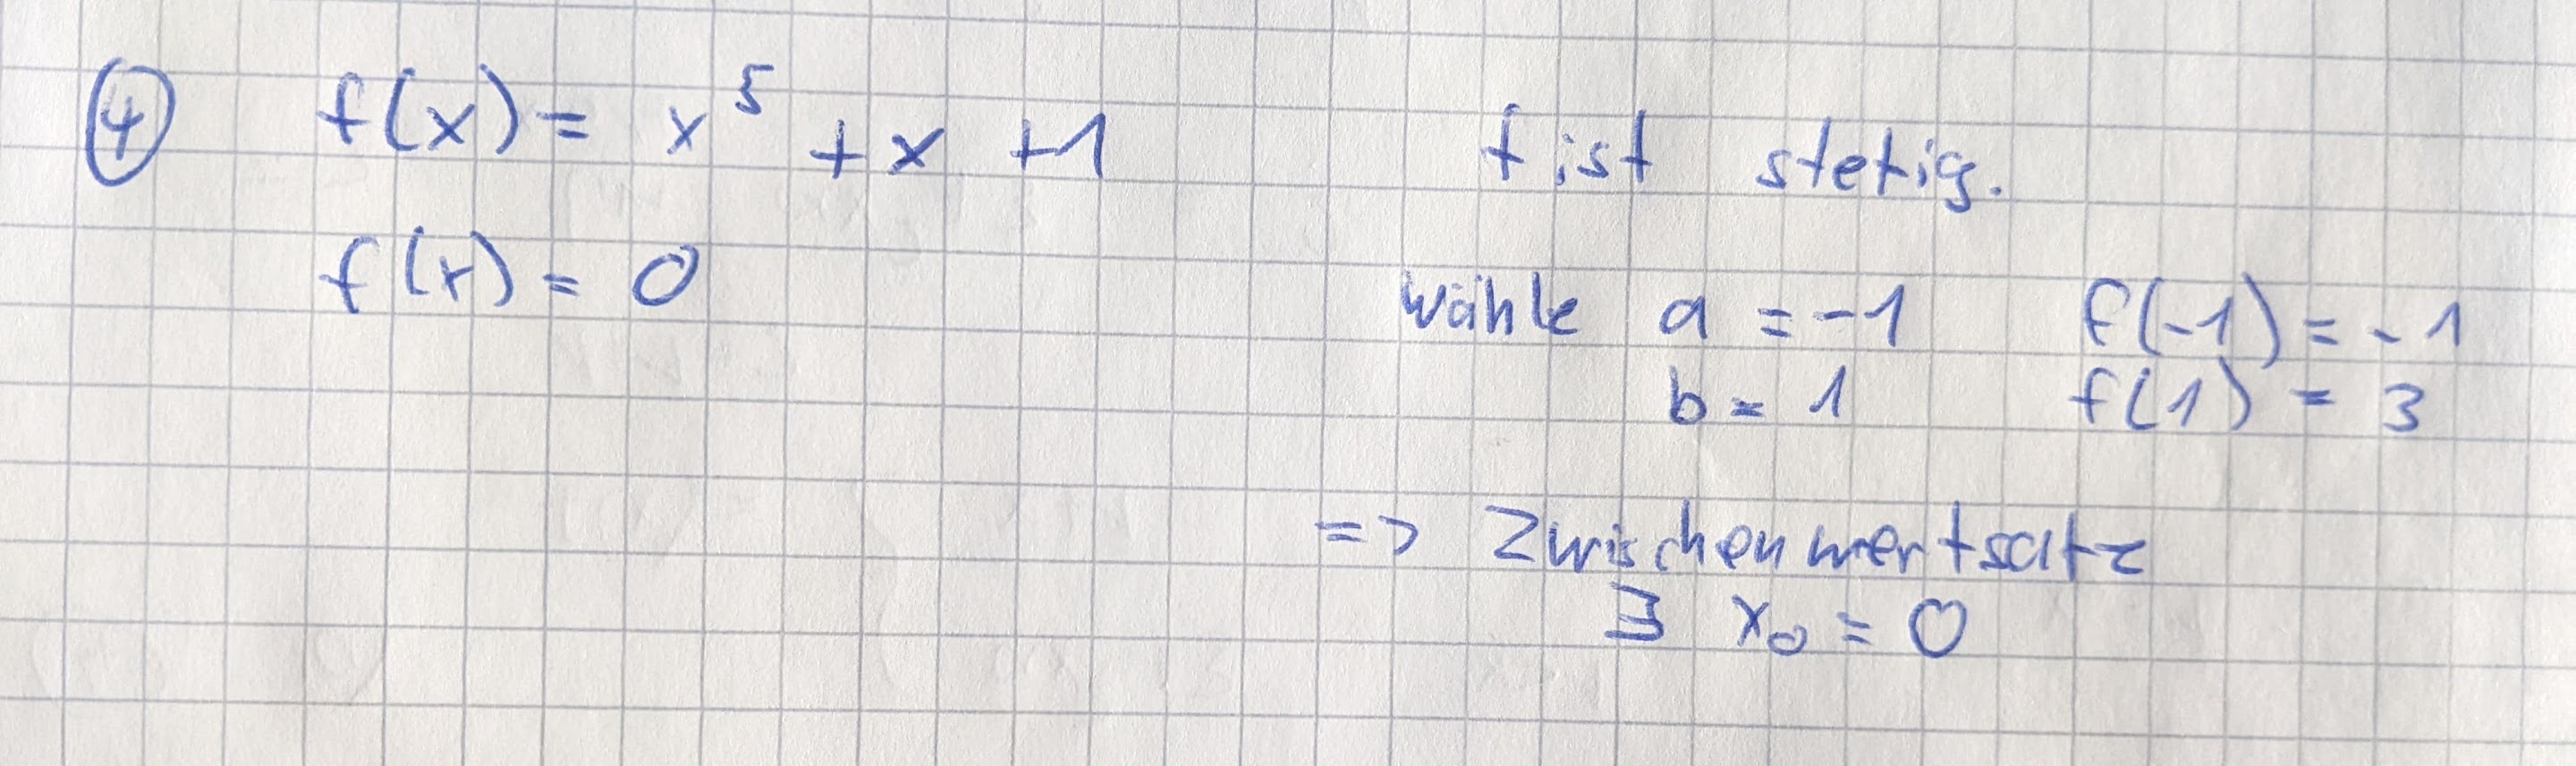 ④ f(x) = x⁵ + x + 1
f(x) = 0
f ist stetig.
wähle a = -1 f(-1) = -1
b = 1 f(1) = 3
=> Zwischenwertsatz
∃ x₀ = 0